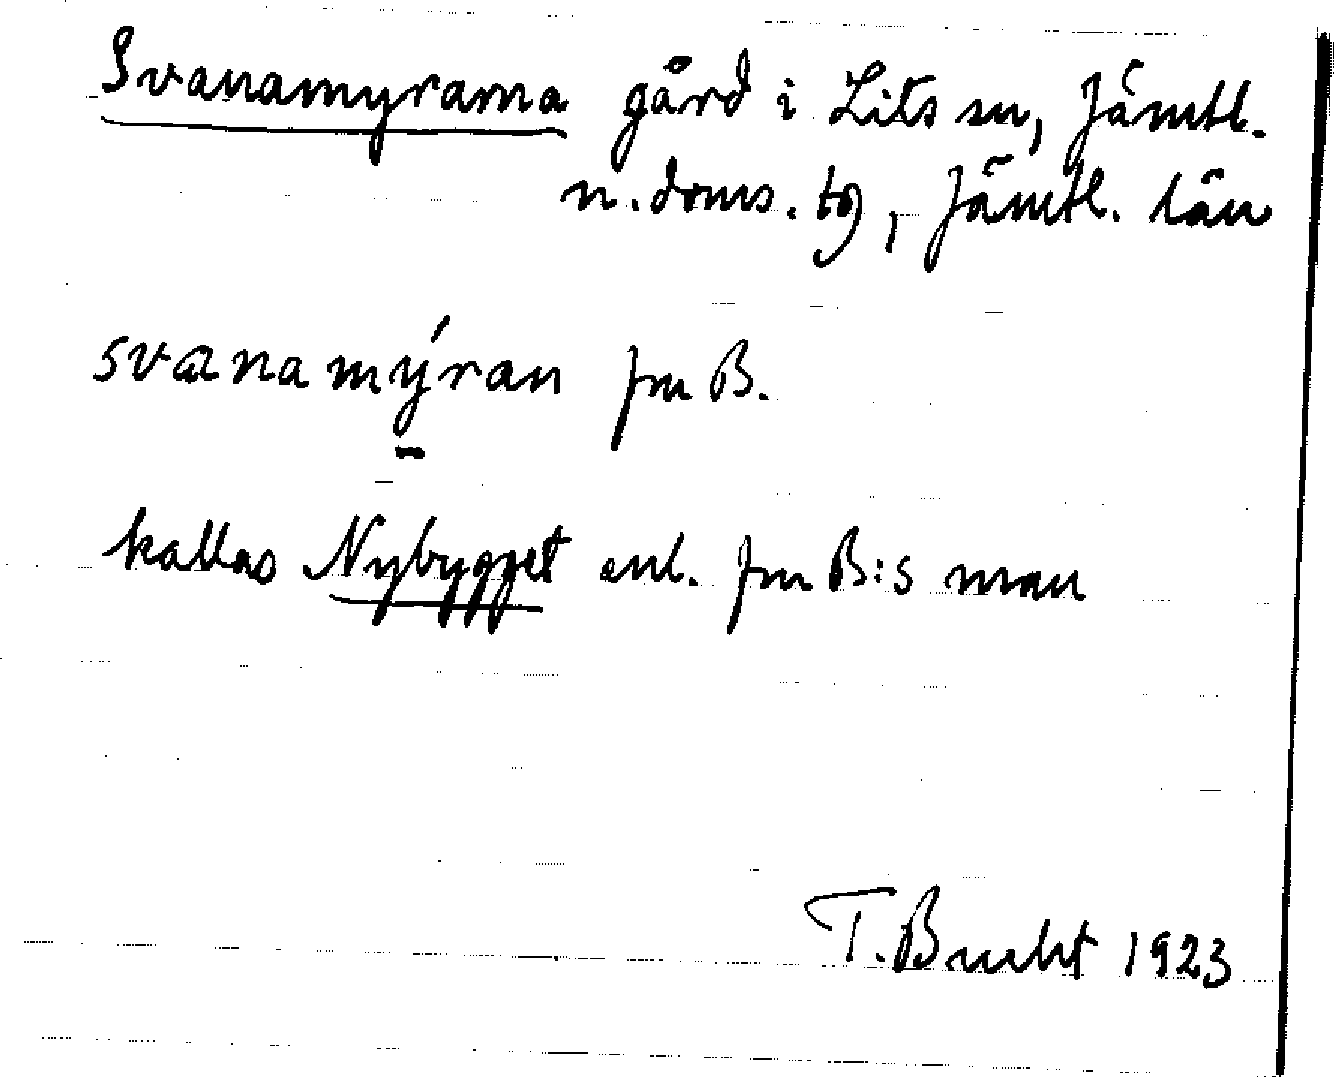 Svanamyrarna gård i Lits sn, Jämtl.
n. doms. tg, Jämtl. län
svanamýran fm B.
kallas Nybygget enl. fm B:s man
T. Bucht 1923